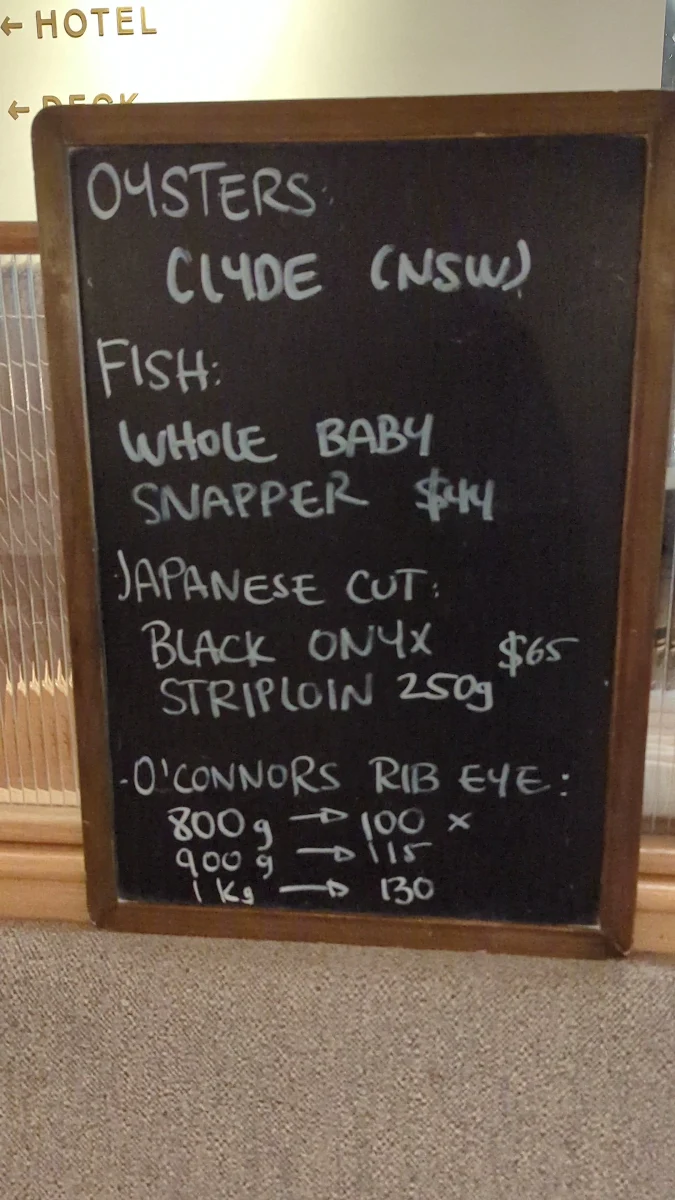 ← HOTEL
← DECK
OYSTERS:
CLYDE (NSW)
FISH:
WHOLE BABY
SNAPPER $44
JAPANESE CUT:
BLACK ONYX $65
STRIPLOIN 250g
-O'CONNORS RIB EYE:
800g → 100 x
900g → 115
1 Kg → 130